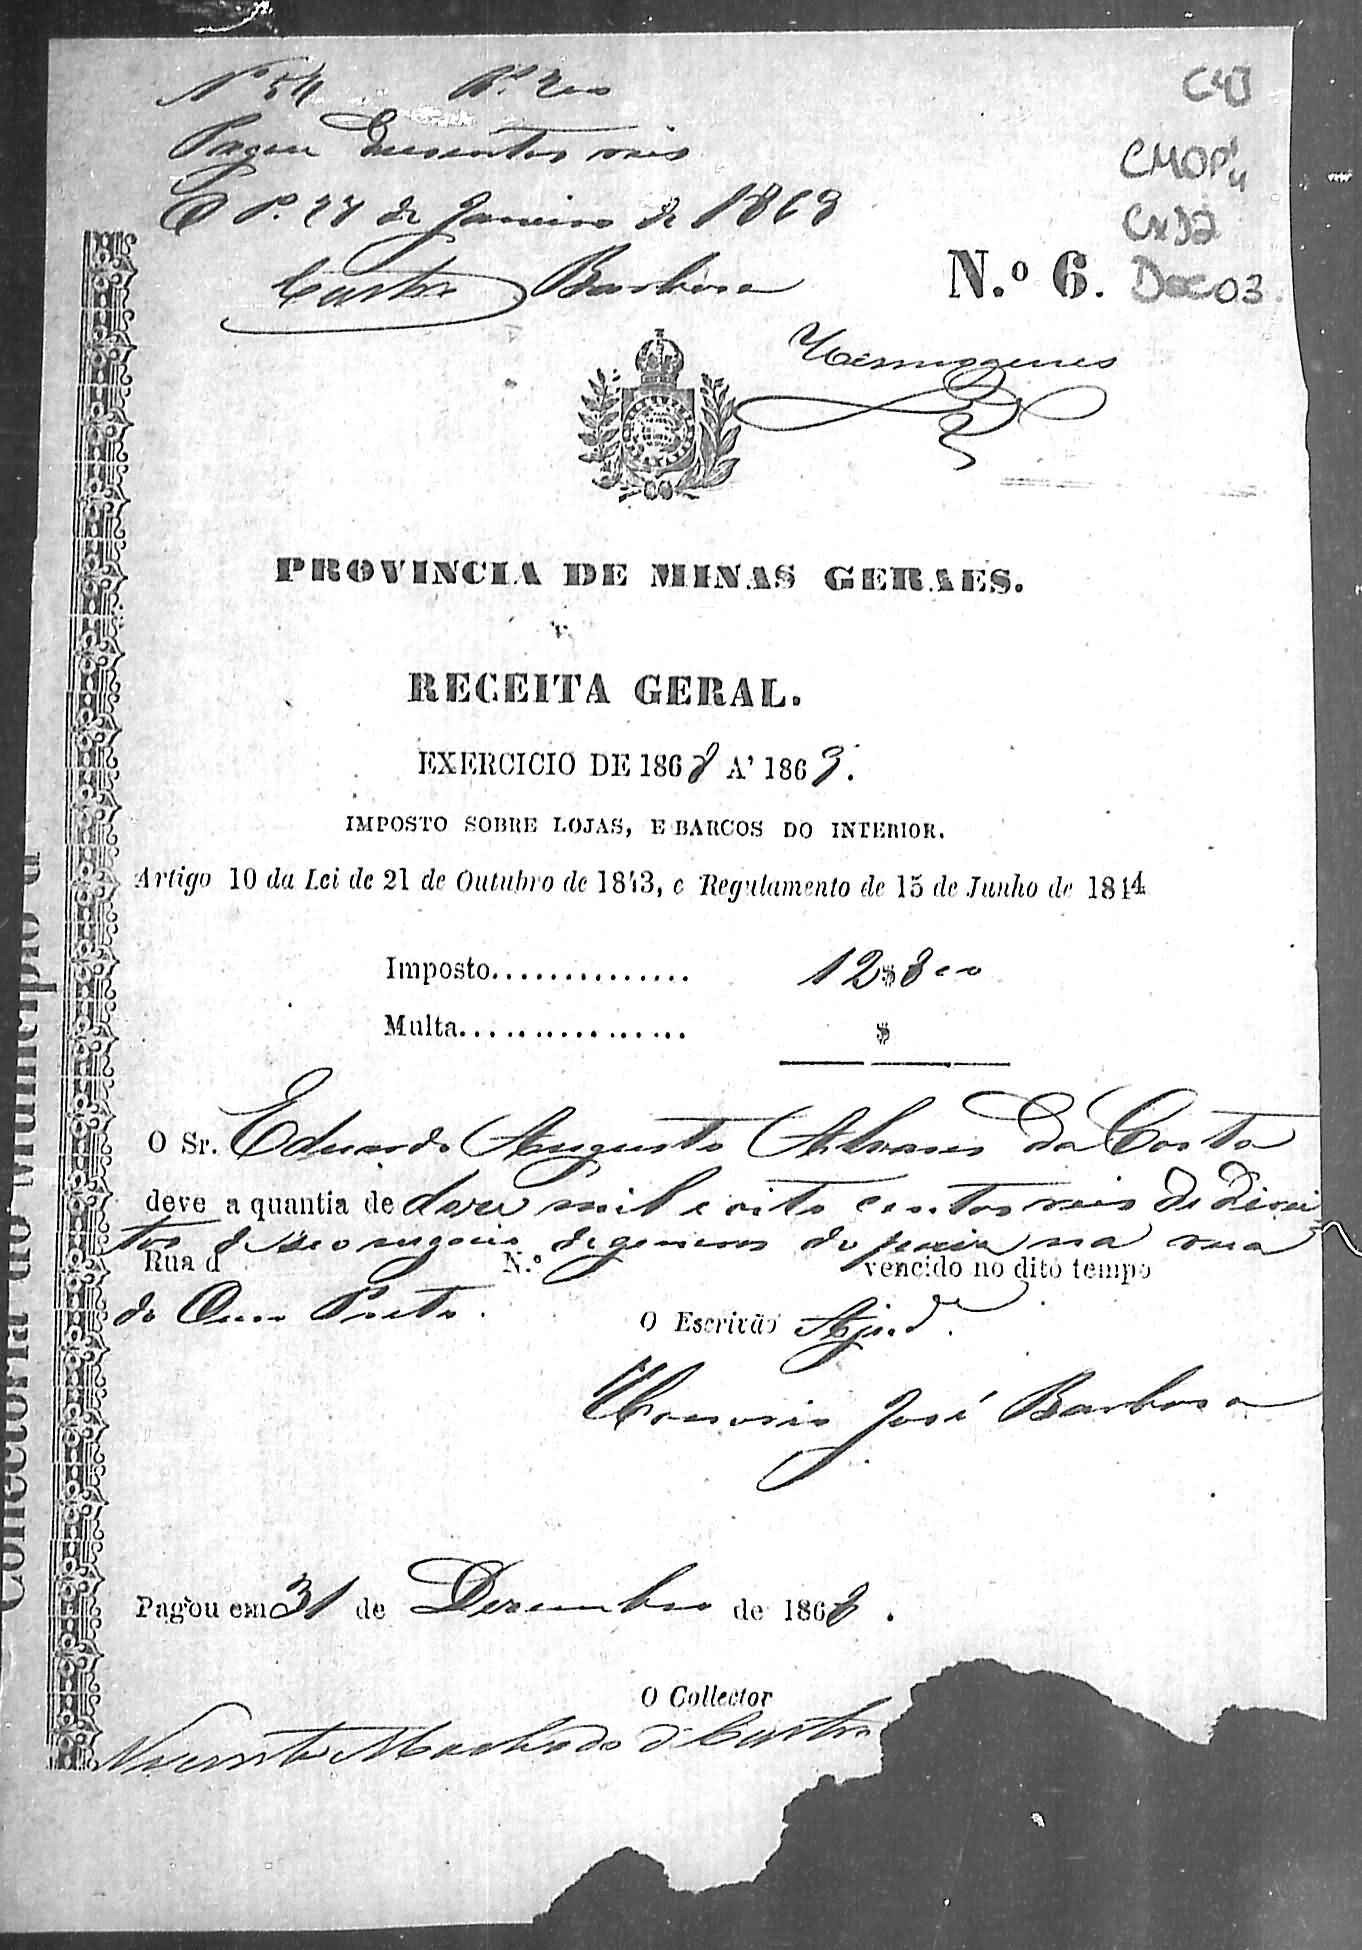 Nº 54 Rs. 200
Pagou Duzentos reis
O P. 27 de Janeiro de 1869
Castro Barbosa
C4J
CMOP
Cx 02
Doc 03.
N.º 6.
Hermogenes
PROVINCIA DE MINAS GERAES.
RECEITA GERAL.
EXERCICIO DE 1868 A' 1869.
IMPOSTO SOBRE LOJAS, E BARCOS DO INTERIOR.
Artigo 10 da Lei de 21 de Outubro de 1843, e Regulamento de 15 de Junho de 1844
Imposto............... 12$800
Multa................. $
O Sr. Eduardo Augusto Alvares da Costa
deve a quantia de doze mil e oito centos reis de Direi
tos de seo negocio de generos do paiz na rua
Rua d N.º vencido no dito tempo
do Ouro Preto.
O Escrivão Ajud.e
Honorio José Barbosa
Pagou em 31 de Dezembro de 1868.
O Collector
Vicente Machado de Castro
Collectoria do Municipio d